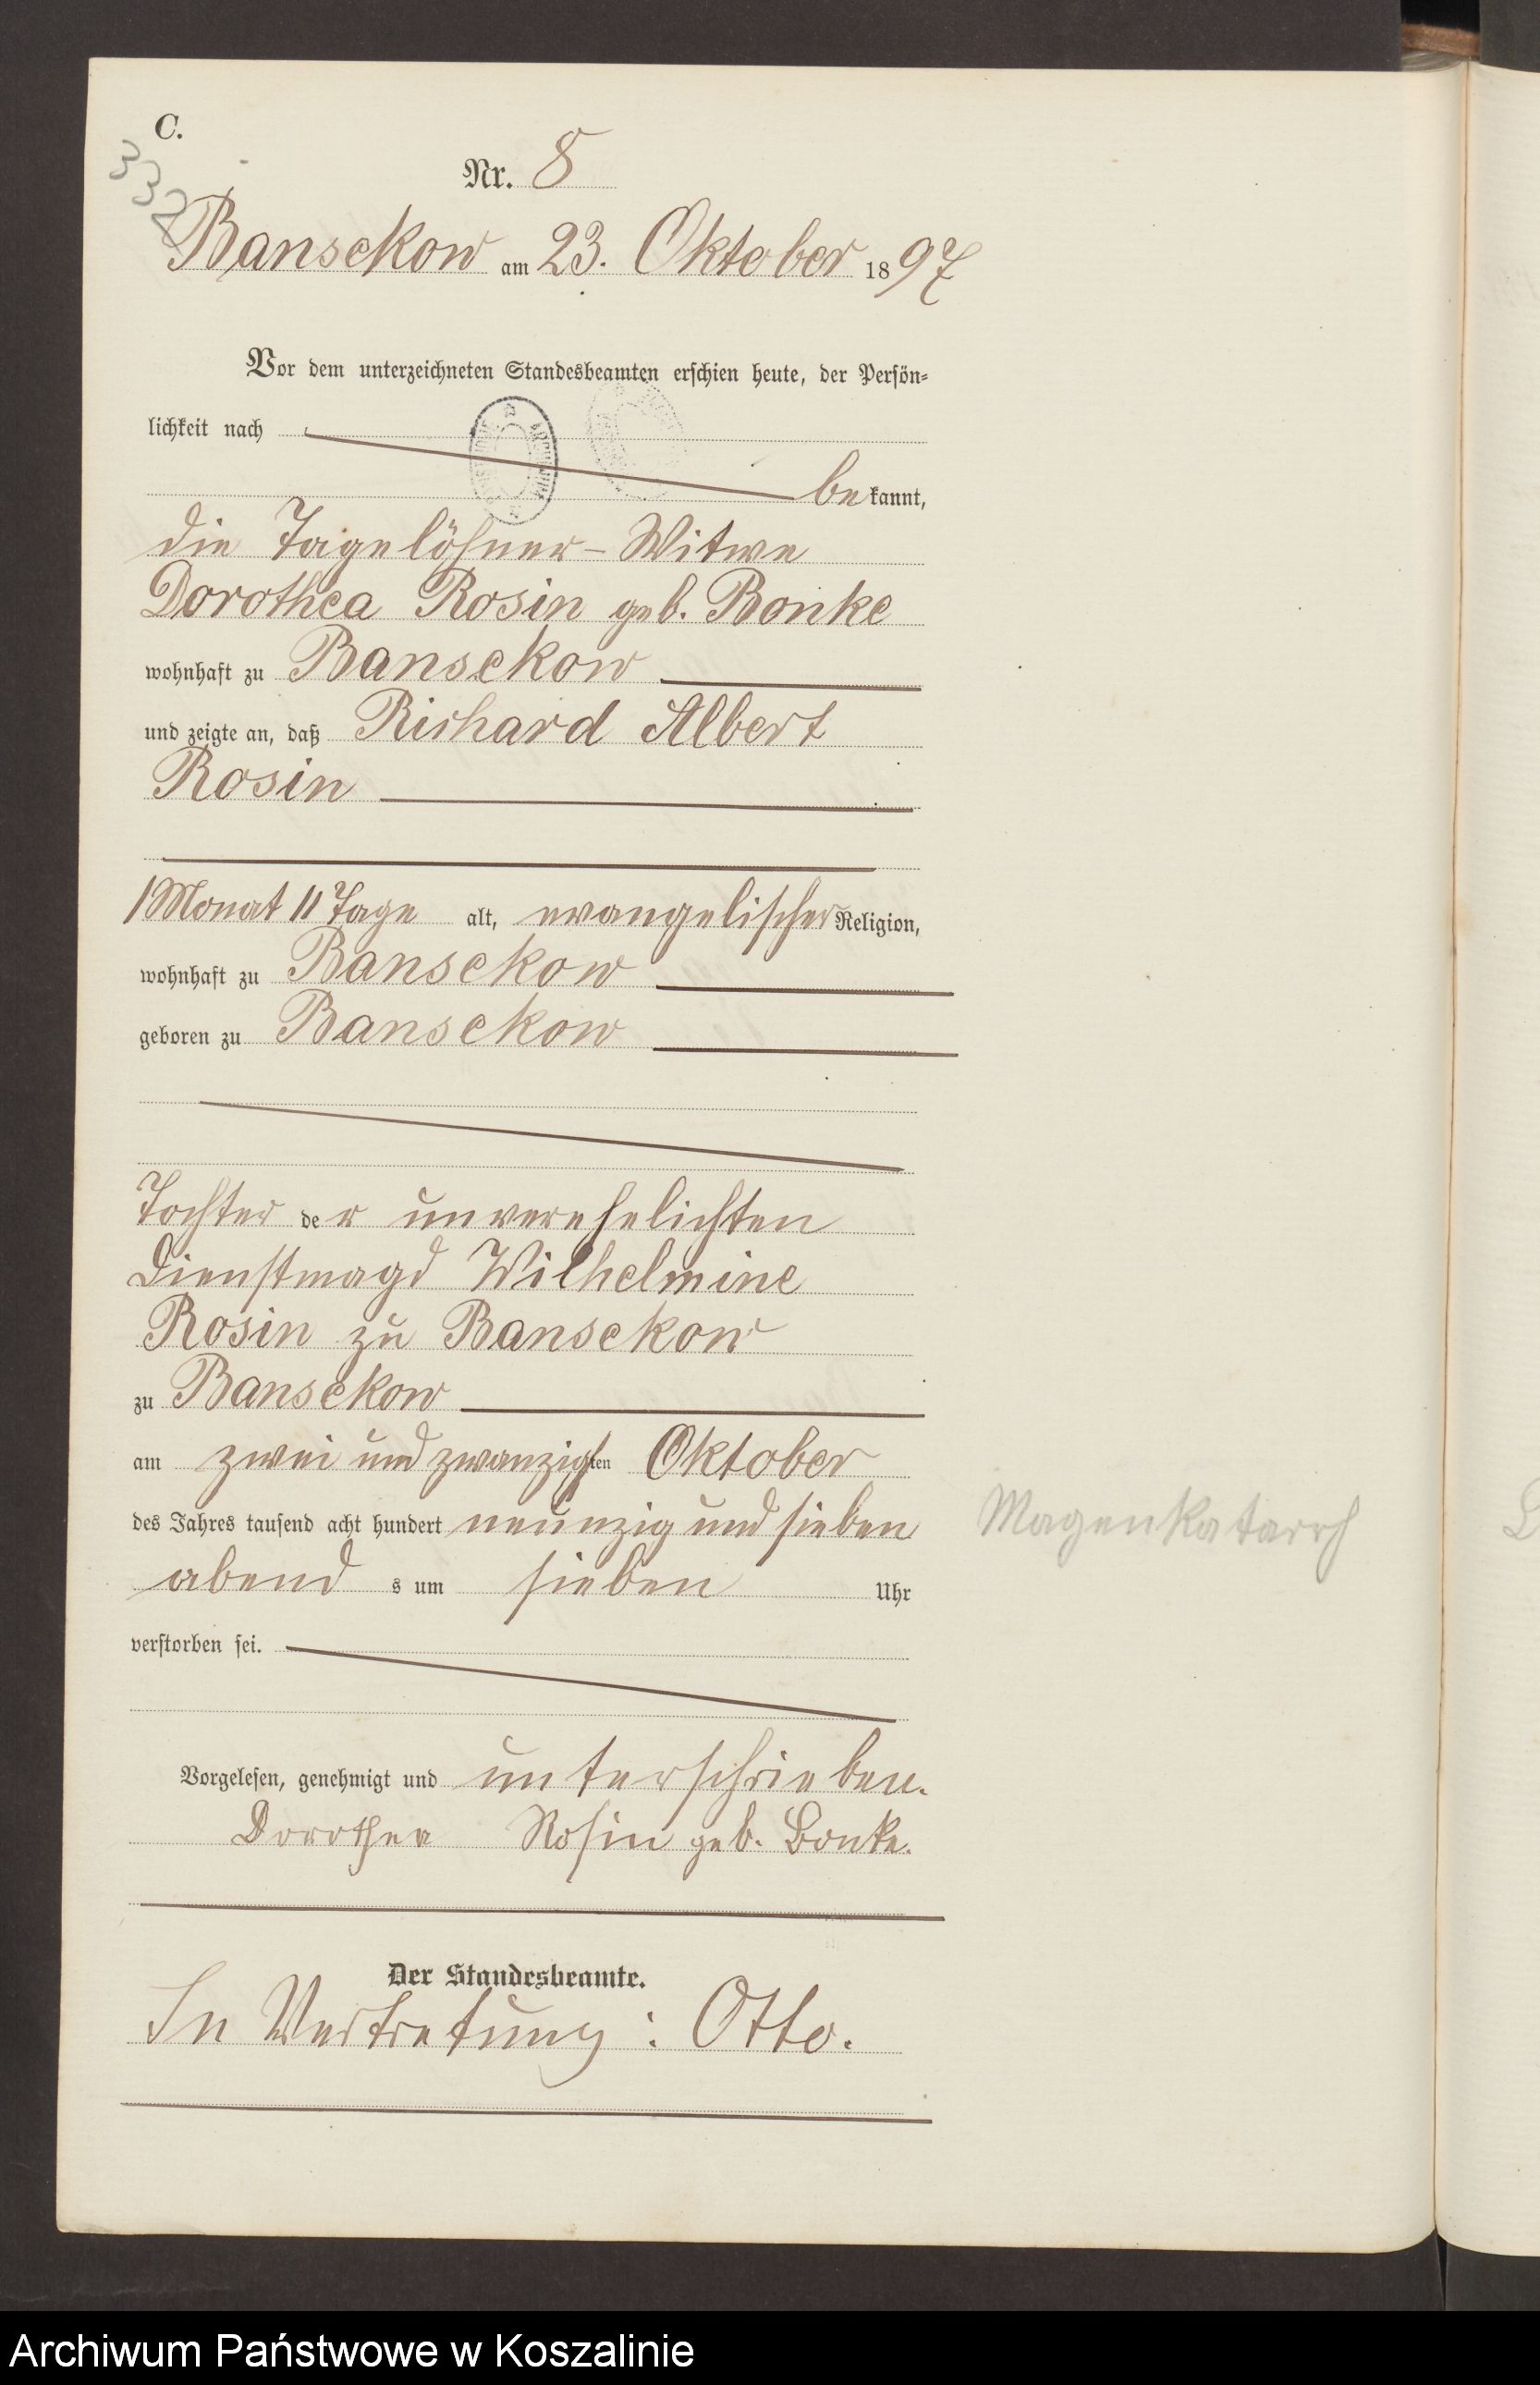 C.
332
Nr. 8
Bansekow am 23. Oktober 1897
Vor dem unterzeichneten Standesbeamten erschien heute, der Persön-
lichkeit nach
bekannt,
die Tagelöhner-Witwe
Dorothea Rosin geb. Bonke
wohnhaft zu Bansekow
und zeigte an, daß Richard Albert
Rosin
1 Monat 11 Tage alt, evangelischer Religion,
wohnhaft zu Bansekow
geboren zu Bansekow
Tochter der unverehelichten
Dienstmagd Wilhelmine
Rosin zu Bansekow
zu Bansekow
am zwei und zwanzigsten Oktober
des Jahres tausend acht hundert neunzig und sieben
abends um sieben Uhr
Magenkatarrh
verstorben sei.
Vorgelesen, genehmigt und unterschrieben.
Dorothea Rosin geb. Bonke.
Der Standesbeamte.
In Vertretung: Otto.
Archiwum Państwowe w Koszalinie